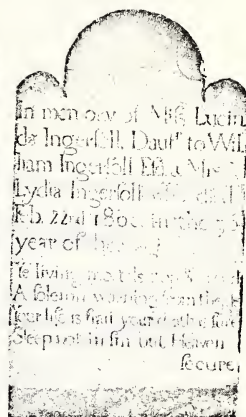 In memory of Miſs Lucin
da Ingerſoll, Daut.r to Wil
liam Ingerſoll Eſq. & Mrs.
Lydia Ingerſoll who died
Feb. 22nd 180 in the
year of her age
Ye living mortals
A ſolemn warning from the
Your life is frail your death is ſure
Sleep not in ſin but Heaven
ſecure